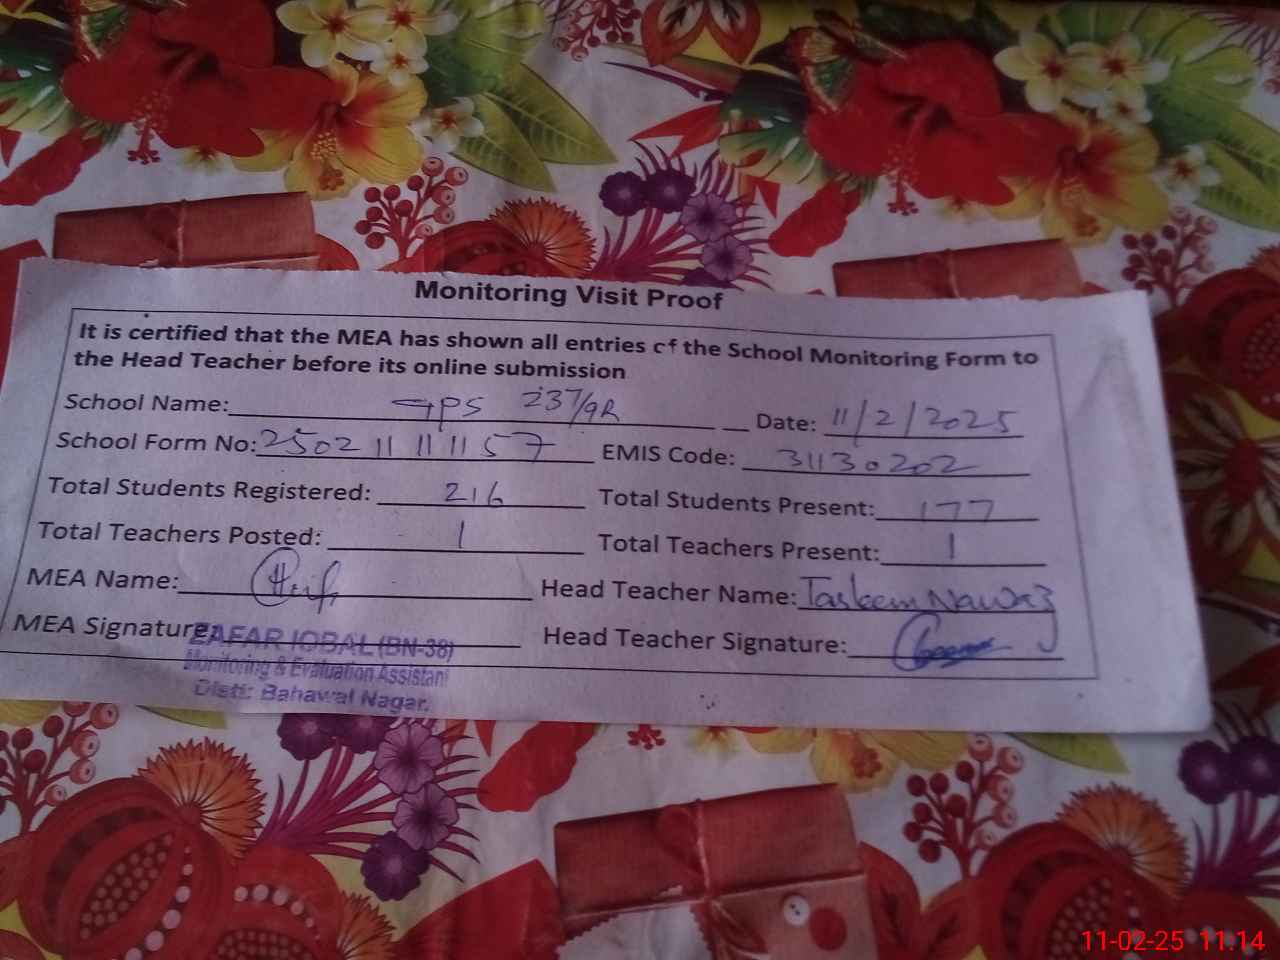 Monitoring Visit Proof
It is certified that the MEA has shown all entries of the School Monitoring Form to
the Head Teacher before its online submission
School Name: GPS 237/9R Date: 11/2/2025
School Form No: 25021111111157 EMIS Code: 31130202
Total Students Registered: 216 Total Students Present: 177
Total Teachers Posted: 1 Total Teachers Present: 1
MEA Name: Head Teacher Name: Tasleem Nawaz
MEA Signature: Head Teacher Signature:
ZAFAR IQBAL (BN-38)
Monitoring & Evaluation Assistant
Distt: Bahawal Nagar.
11-02-25 11:14